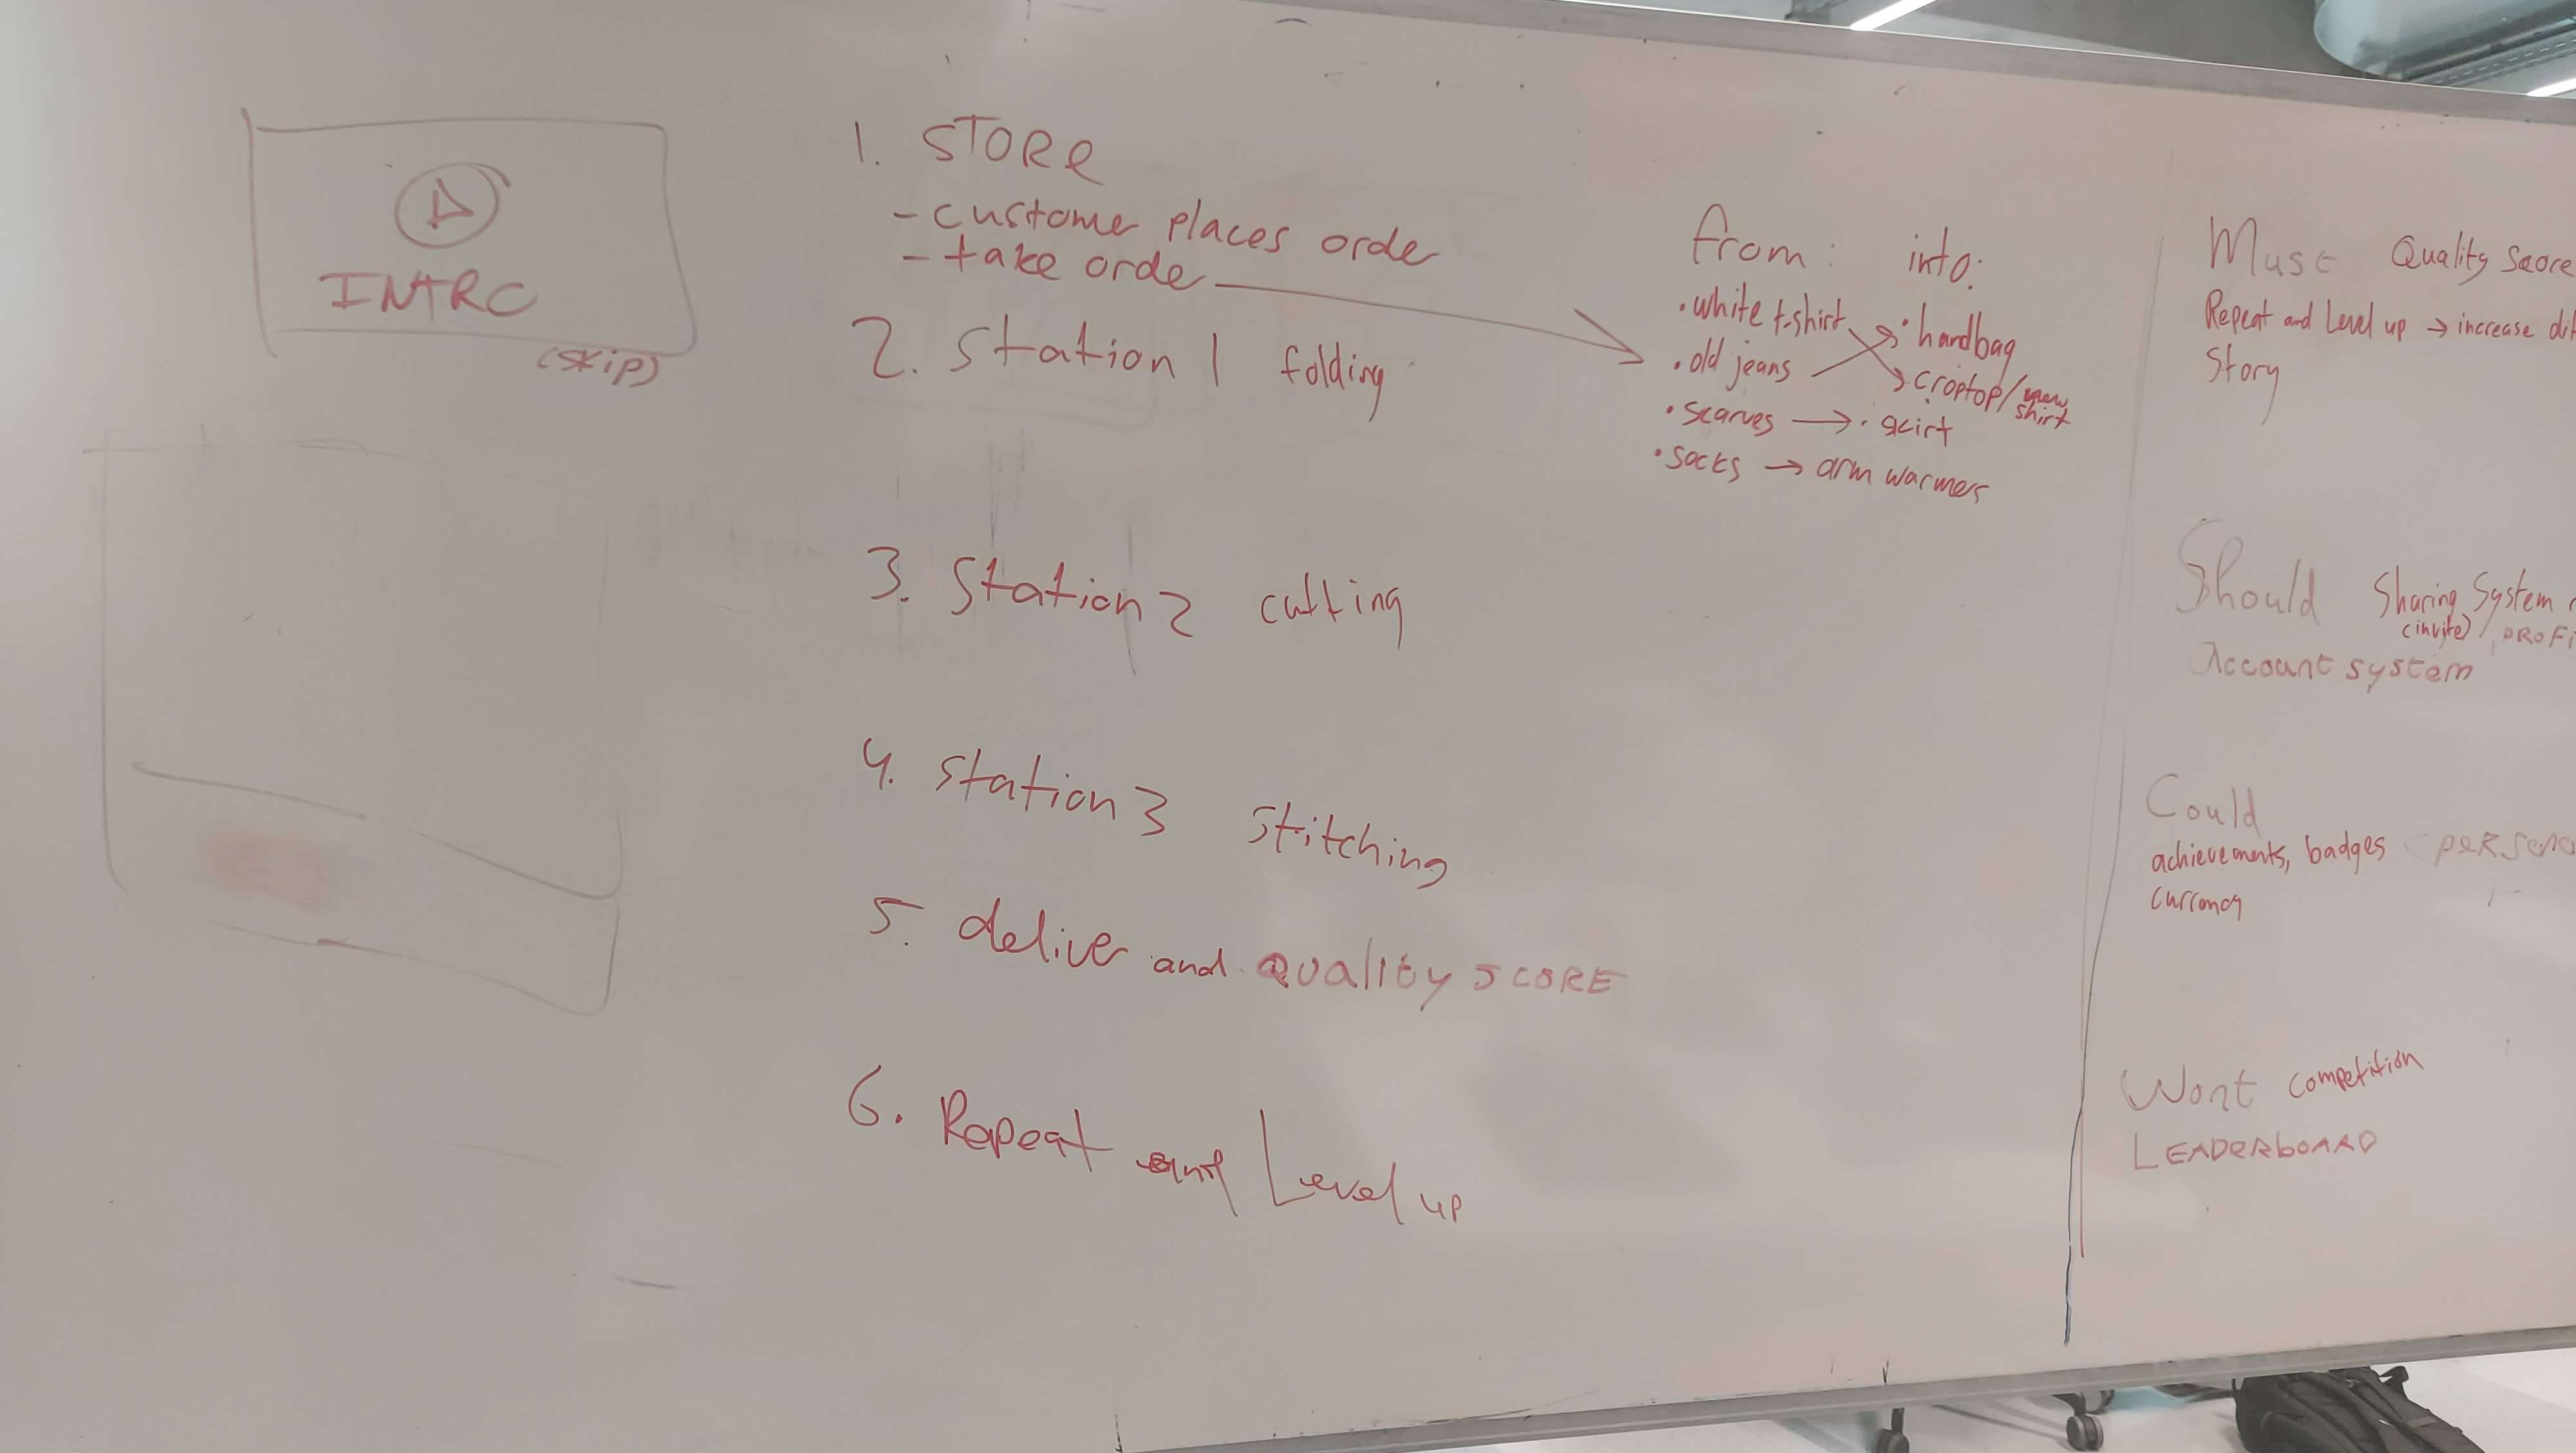 INTRO
(skip)
1. STORE
- custome places orde
- take orde
2. Station 1 folding
3. Station 2 cutting
4. Station 3 stitching
5. deliver and QUALITY SCORE
6. Repeat and Level up
from: into:
• white t-shirt
• old jeans
• scarves → • skirt
• socks → arm warmers
• handbag
croptop/new
shirt
Must Quality Score
Repeat and Level up → increase
Story
Should Sharing System
(invite)/
Account system
Could
achievements, badges
currency
Wont competition
LEADERBOARD